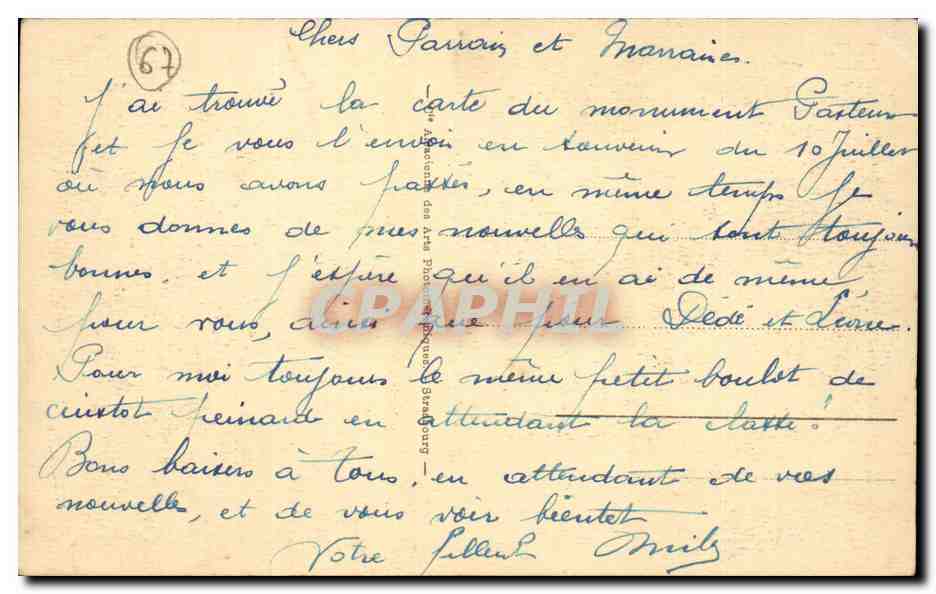 67
Chers Parrain et Marraines.
J'ai trouvé la carte du monument Pasteur
et Je vous l'envoie en souvenir du 10 Juillet
où nous avons passés, en même temps Je
vous donnes de mes nouvelles qui sont toujours
bonnes, et j'espère qu'il en ai de même,
pour vous, ainsi que pour Dédé et
Pour moi toujours le même petit boulot de
cuistot peinard en attendant la classe!
Bons baisers à Tous, en attendant de vos
nouvelles, et de vous voir bientot
Votre filleul
Cie Alsacienne des Arts Photomécaniques - Strasbourg
CPAPHIL